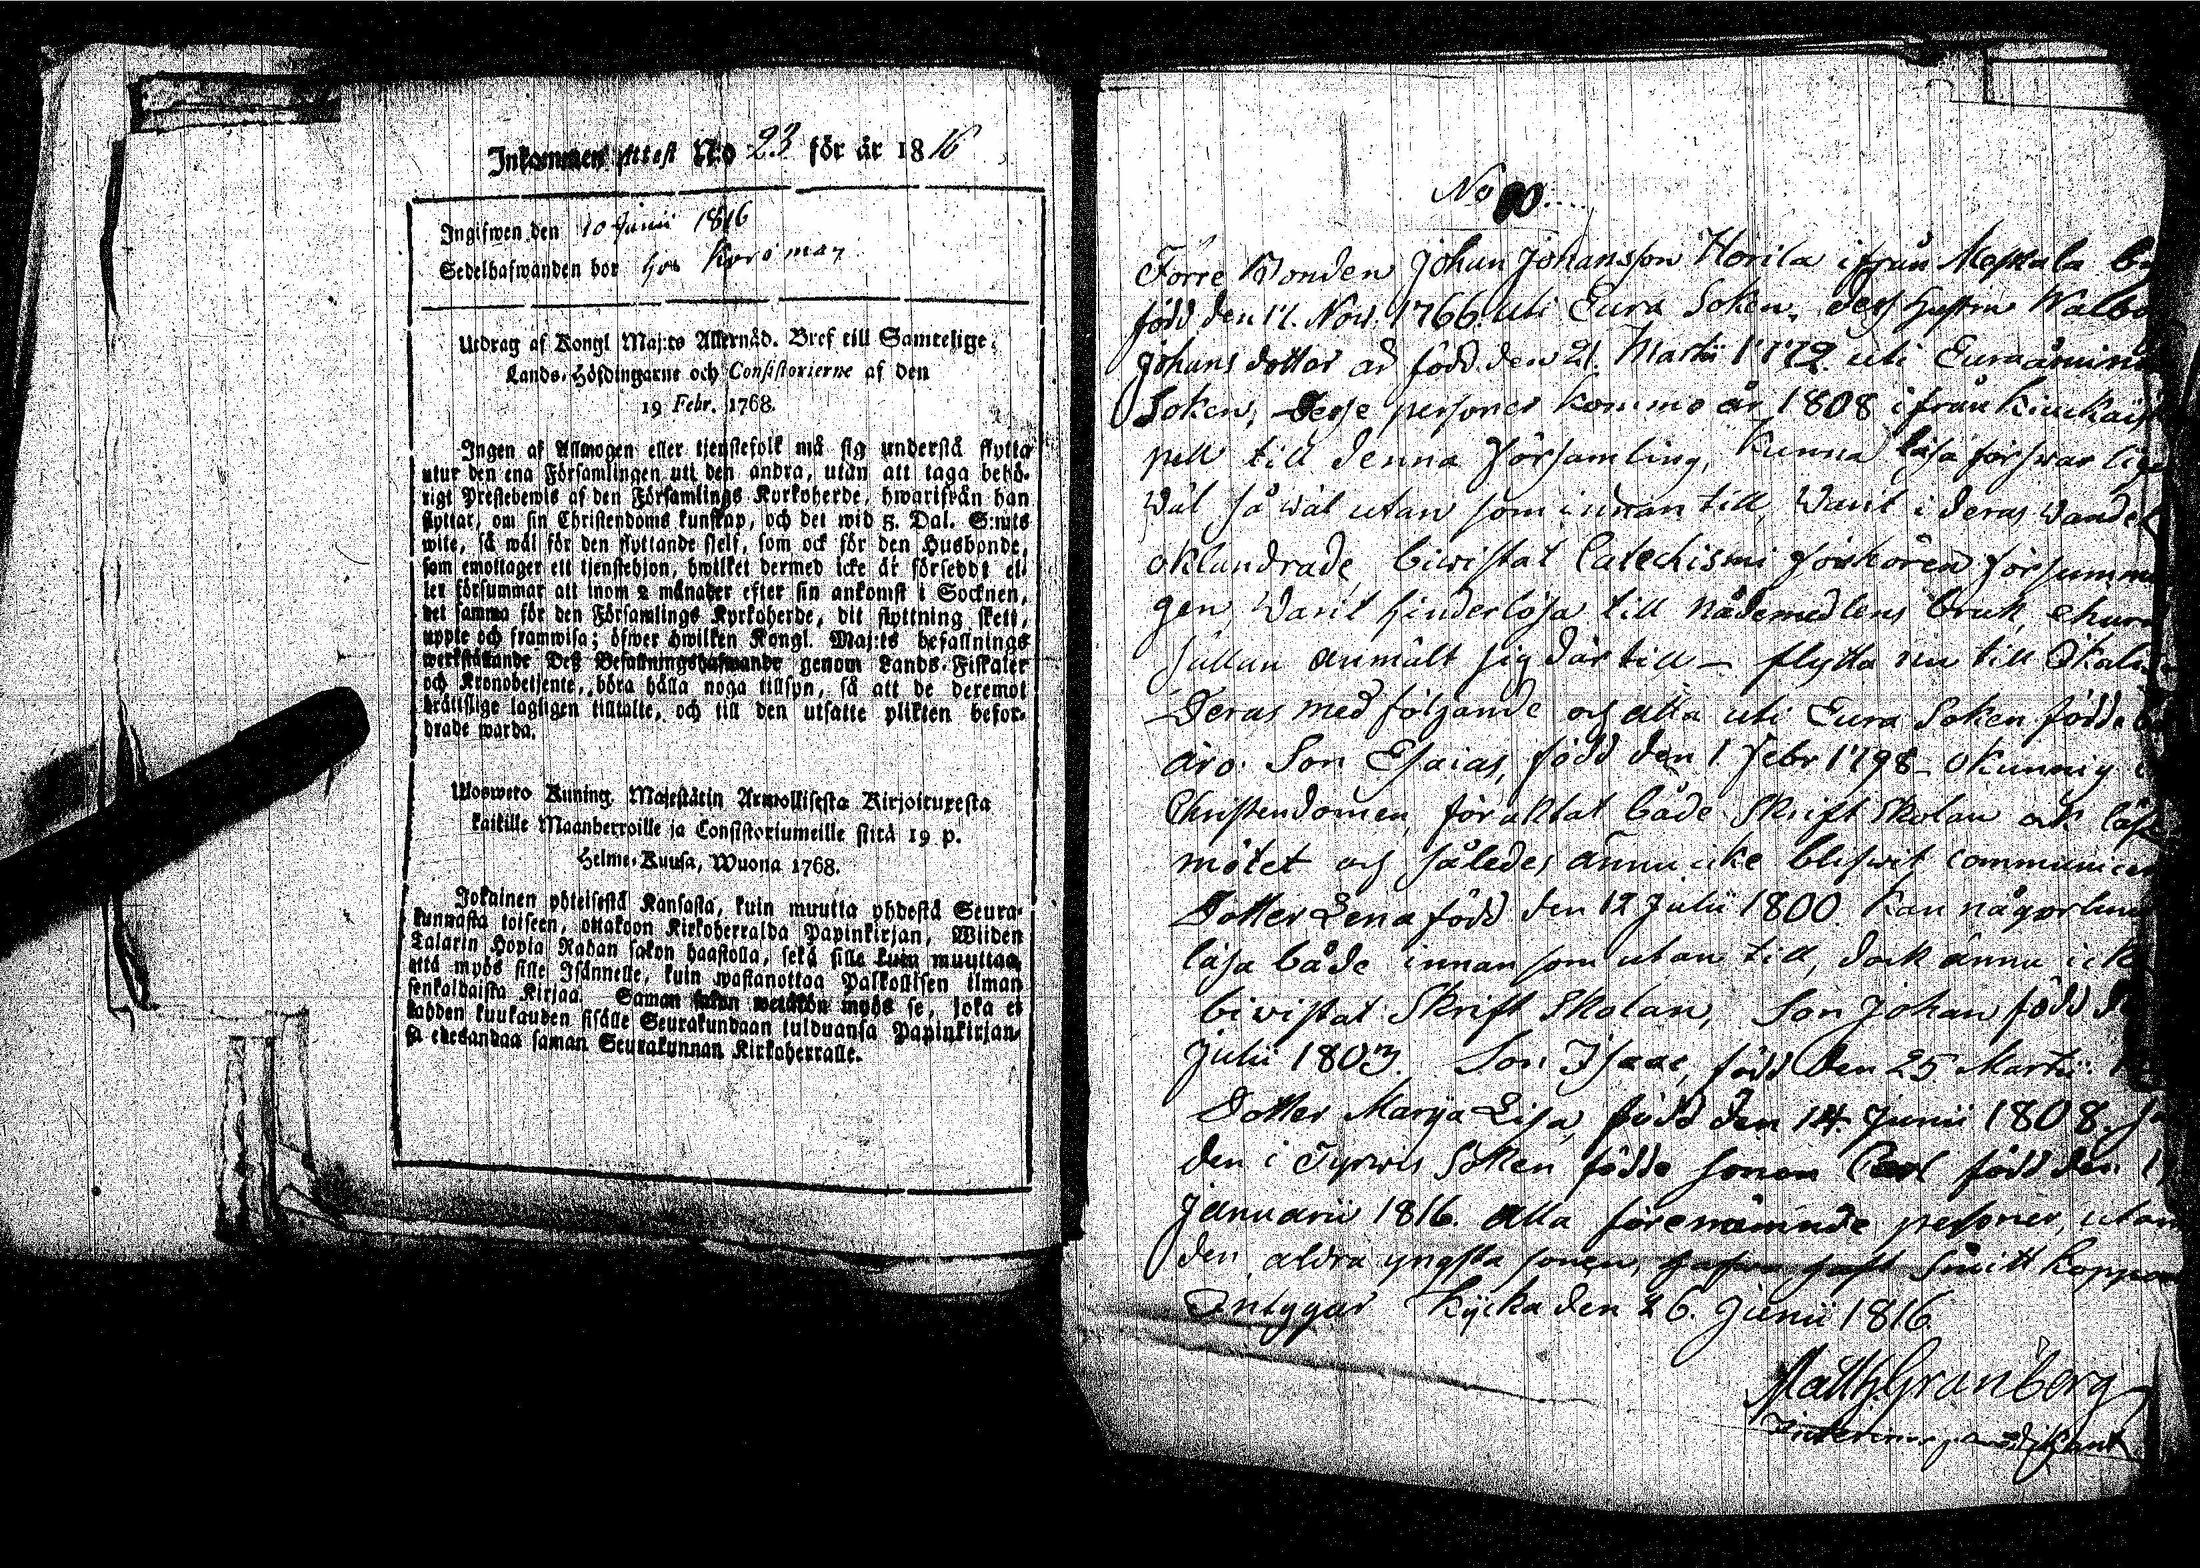 Inkommen Attest N:o 23 för år 1816
Ingifwen den 10 Junii 1816
Sedelhafwanden bor hos
Utdrag af Kongl Maj:ts Allernåd. Bref till Samtelige
Lands-Höfdingarne och Consistorierne af den
19 Febr. 1768.
Ingen af Allmogen eller tjenstefolk må sig understå flytta
utur den ena Församlingen uti den andra, utan att taga behö-
rigt Prestebewis af den Församlings Kyrkoherde, hwarifrån han
flyttar, om sin Christendoms kunskap, och det wid 5. Dal. S:mts
wite, så wäl för den flyttande sjelf, som ock för den Husbonde,
som emottager ett tjenstehjon, hwilket dermed icke är försedt el-
ler försummar att inom 2 månader efter sin ankomst i Socknen,
det samma för den Församlings Kyrkoherde, dit flyttning skett,
uppte och framwisa; öfwer hwilken Kongl. Maj:ts befallnings
werkställande Deß Befallningshafwande genom Lands-Fiskaler
och Kronobetjente, böra hålla noga tillsyn, så att de deremot
brättslige lagligen tilltalte, och till den utsatte plikten befor-
drade warda.
Ulosweto Kuning. Majestätin Armollisesta Kirjoituxesta
kaikille Maanherroille ja Consistoriumeille siitä 19 p.
Helme-Kuusa, Wuona 1768.
Jokainen yhteisestä Kansasta, kuin muutta yhdestä Seura-
kunnasta toiseen, ottakoon Kirkoherralda Papinkirjan, Wiiden
Talarin Hopia Rahan sakon haastolla, sekä sille kuin muuttaa,
että myös sille Isännelle, kuin wastanottaa Palkollisen ilman
senkaldaista Kirjaa. Saman sakon wetäkön myös se, joka ei
kahden kuukauden sisälle Seurakundaan tulduansa Papinkirjan-
sa edesandaa saman Seurakunnan Kirkoherralle.
No
Förre Bonden Johan Johansson Horila ifrån
född den 17. Nov. 1766. uti Eura Soken, dess hustru
Johans dotter är född den 21. Martii 1772. uti
Soken, Desse personer kommo år 1808 ifrån
pell till denna församling, Kunna läsa
wäl så wäl utan som innan till, warit i deras
oklandrade, biwistat Catechismi förhören
gen, warit hinderlösa till nådemedlens bruk,
sällan anmält sig där till – flytta nu till
Deras medföljande och alla uti Eura Soken födde
äro. Son Esaias, född den 1 Febr 1798 – okunnig
Christendomen, föraktat både Skrift Skolan och
mötet och således ännu icke blifwit
Dotter Lena född den 12 Julii 1800. kan
läsa både innan som utan till, dock ännu
biwistat Skrift Skolan, Son Johan född
Julii 1803. Son Isaac, född den 25 Martii
Dotter Marja Lisa, född den 14 Junii 1808.
den i Tyrwis Soken födde sonen Carl född den
Januarii 1816. alla förenämnde personer,
den aldra yngsta sonen, hafwa haft
Intygar Kjcka den 26. Junii 1816.
Matth Granberg